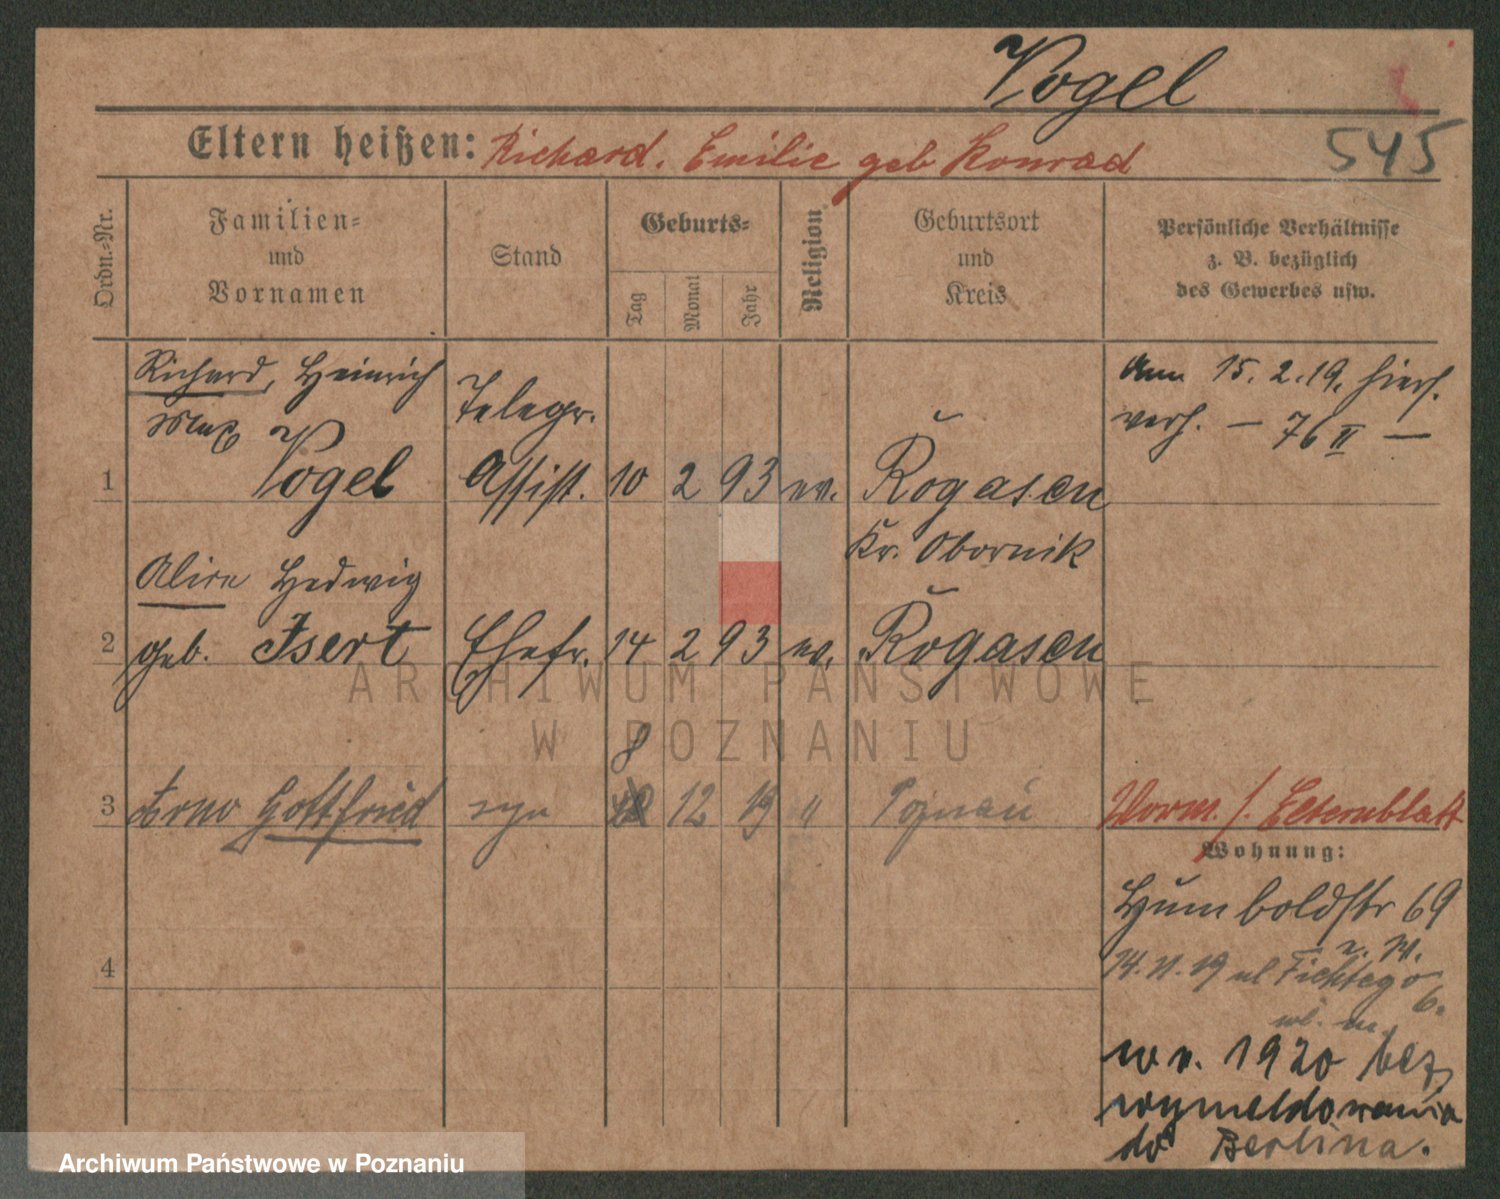 Vogel
545
Eltern heißen: Richard. Emilie geb Konrad
Ordn.-Nr.
Familien-
und
Vornamen
Stand
Geburts-
Tag
Monat
Jahr
Religion
Geburtsort
und
Kreis
Persönliche Verhältnisse
z. B. bezüglich
des Gewerbes usw.
Richard, Heinrich
Max
1 Vogel
Telegr.
Assist. 10 2 93 ev. Rogasen
Kr. Obornik
Am 15.2.19. hiers.
verh. — 76 II —
Alice Hedwig
2 geb. Isert Ehefr. 14 2 93 ev. Rogasen
8
3 Arno Gottfried syn 12 19 " Poznań
Vorm. s. Elternblatt
Wohnung:
Humboldstr 69
14.11.19 ul Fichtego
6.
4
w r. 1920 bez
wymeldowania
do Berlina.
ARCHIWUM PAŃSTWOWE
W POZNANIU
Archiwum Państwowe w Poznaniu